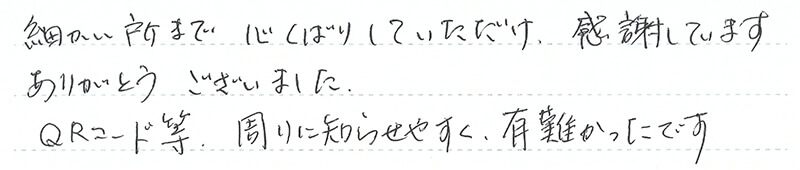 細かい所まで 心くばりしていただけ、感謝しています
ありがとう ございました.
QRコード等、周りに知らせやすく、有難かったです